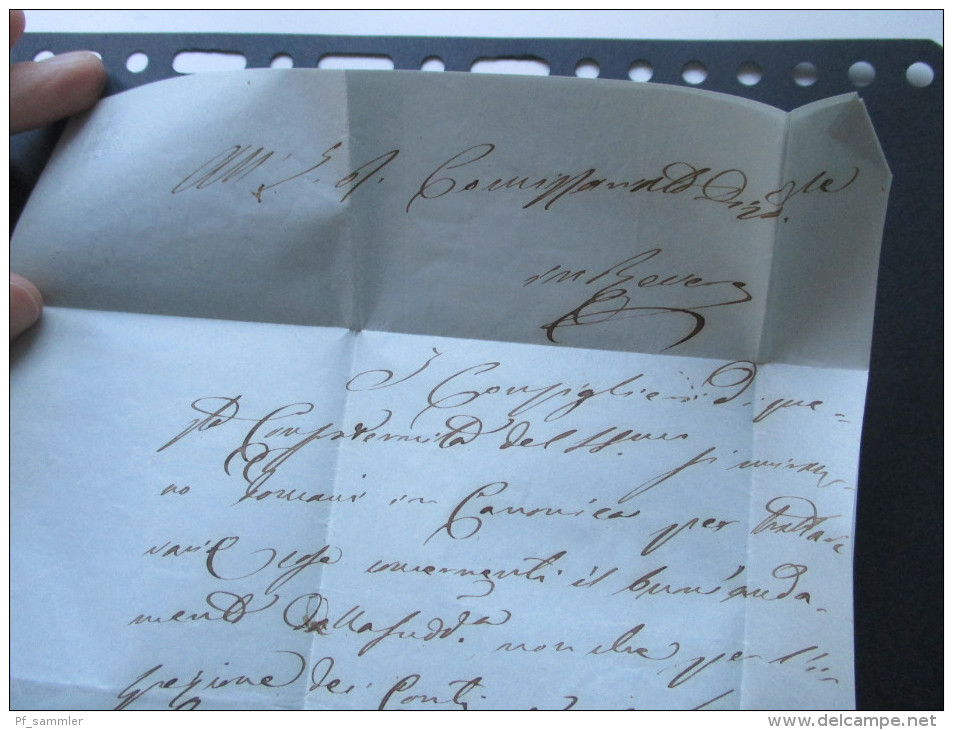 All' I. R. Commissariato Distrle
in Revere
I Consiglieri di que-
sta Confraternita del SSmo si uniran-
no domani in Canonica per trattare
varie cose concernenti il buon anda-
mento della sudda non che per l'i-
spezione dei Conti
Pf_sammler
www.delcampe.net